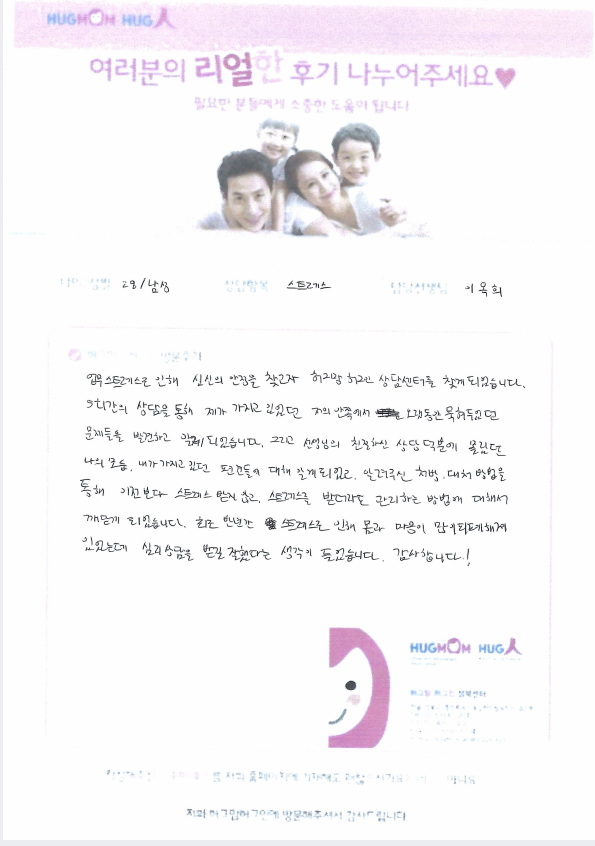 HUGMOM HUG人
여러분의 리얼한 후기 나누어주세요♥
필요한 분들에게 소중한 도움이 됩니다
28/남성 상담항목 스트레스 담당선생님 이옥희
방문후기
업무스트레스로 인해 심신의 안정을 찾고자 허그맘 허그인 상담센터를 찾게 되었습니다.
9시간의 상담을 통해 제가 가지고 있었던 저의 안쪽에서 오랫동안 묵혀두었던
문제들을 발견하고 알게 되었습니다. 그리고 선생님의 친절하신 상담 덕분에 몰랐던
나의 모습, 내가 가지고 있던 편견들에 대해 알게되었고, 알려주신 처방, 대처 방법을
통해 이전보다 스트레스 받지 않고, 스트레스를 받더라도 관리하는 방법에 대해서
깨닫게 되었습니다. 최근 반년간 스트레스로 인해 몸과 마음이 많이 피폐해져
있었는데 심리상담을 받길 잘했다는 생각이 들었습니다. 감사합니다!
HUGMOM HUG人
허그맘 허그인 성북센터
저희 허그맘허그인에 방문해주셔서 감사드립니다